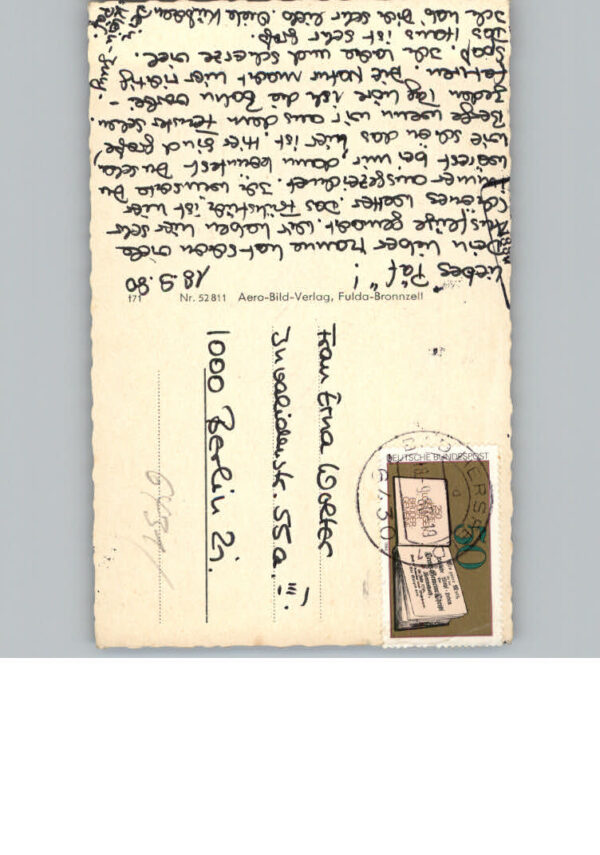 18.9.80
Liebes "Päf"!
Dein lieber Hanne hat schon viele
Ausflüge gemacht. Wir haben hier sehr
schönes Wetter. Das Frühstück ist hier
immer ausgezeichnet. Ich wünschte Du
wärest bei mir dann könntest Du sehen
wie schön das hier ist. Hier sind große
Berge wenn wir aus dem Fenster sehen.
Jeden Tag höre ich die Bahn vorbei-
fahren. Die Natur macht hier richtig
Spaß. Ich lache und scherze viel.
Das Haus ist sehr groß.
Ich hab' Dich sehr lieb. Viele Küsse
Dein
Junge
171 Nr. 52811 Aero-Bild-Verlag, Fulda-Bronnzell
Frau Erna Wolter
Invalidenstr. 55a
1000 Berlin 21.
DEUTSCHE BUNDESPOST
50